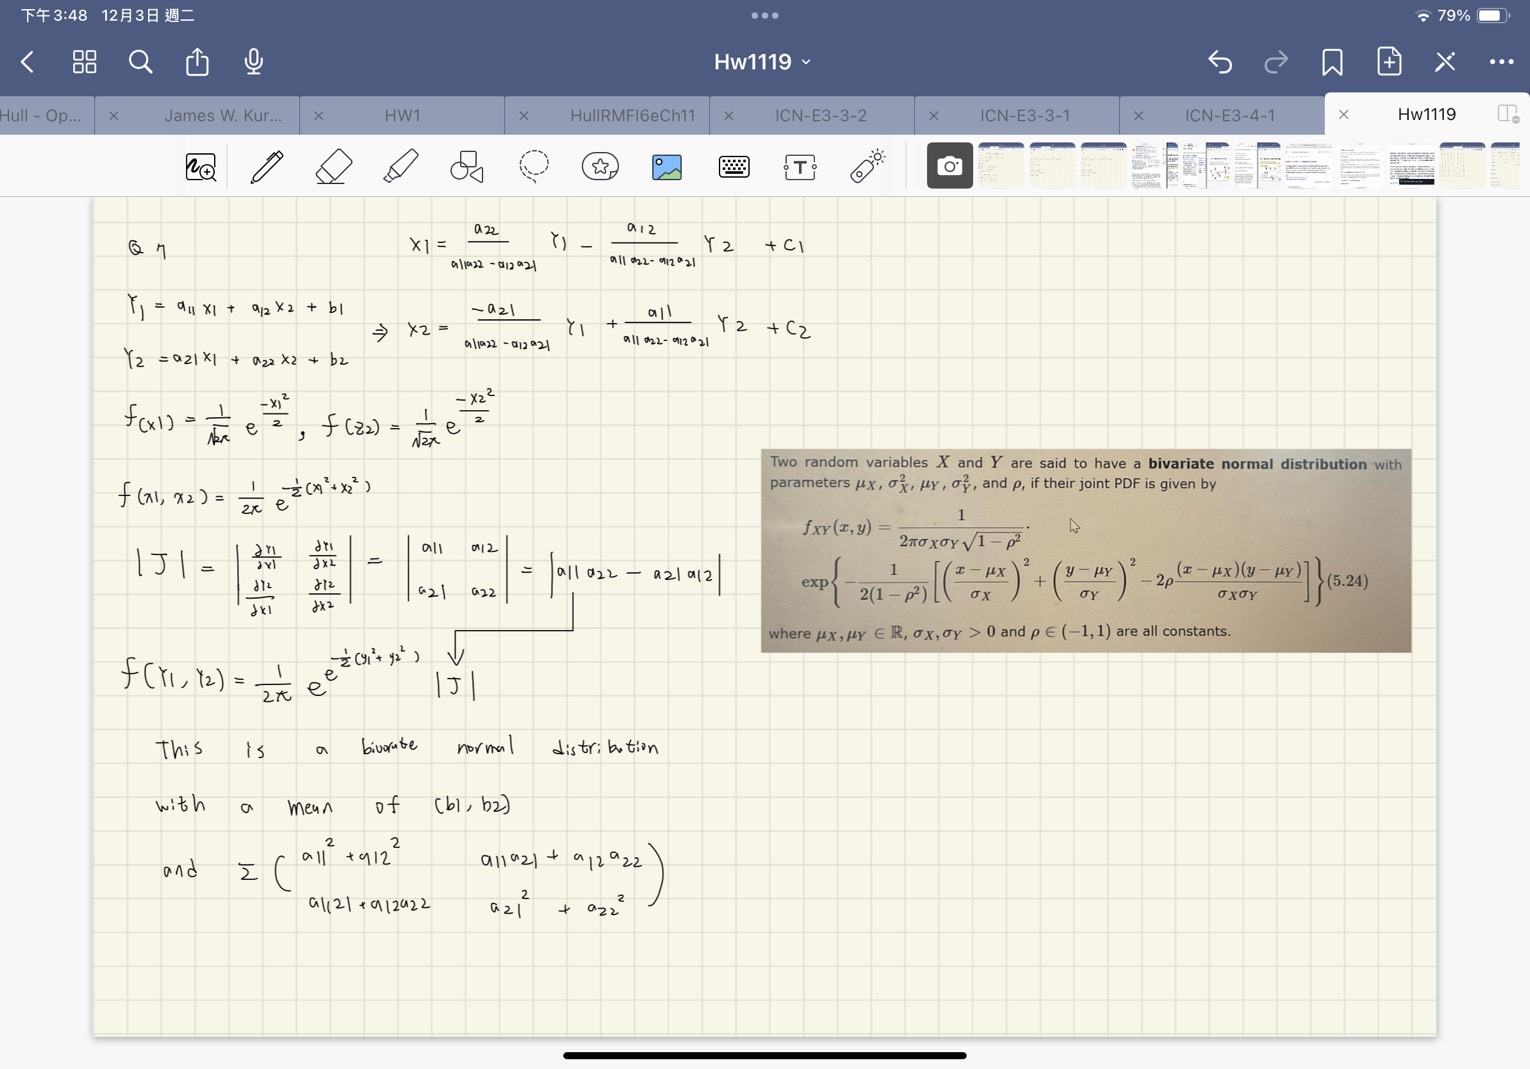 下午3:48 12月3日 週二
79%
Hw1119
Hull - Op...
James W. Kur...
HW1
HullRMFI6eCh11
ICN-E3-3-2
ICN-E3-3-1
ICN-E3-4-1
Hw1119
Q 7
x1 = a22/(a11a22 - a12a21) Y1 - a12/(a11a22 - a12a21) Y2 + C1
Y1 = a11 x1 + a12 x2 + b1
⇒ x2 = -a21/(a11a22 - a12a21) Y1 + a11/(a11a22 - a12a21) Y2 + C2
Y2 = a21 x1 + a22 x2 + b2
f(x1) = 1/√2π e^(-x1²/2) , f(z2) = 1/√2π e^(-x2²/2)
f(x1, x2) = 1/2π e^(-1/2(x1²+x2²))
|J| = |∂Y1/∂x1 ∂Y1/∂x2 ∂Y2/∂x1 ∂Y2/∂x2| = |a11 a12 a21 a22| = |a11 a22 - a21 a12|
f(Y1, Y2) = 1/2π e^e^(-1/2(y1²+y2²)) |J|
This is a bivorate normal distribution
with a mean of (b1, b2)
and Σ (a11² + a12² a11a21 + a12a22
a1121 + a12a22 a21² + a22²)
Two random variables X and Y are said to have a bivariate normal distribution with
parameters μX, σ²X, μY, σ²Y, and ρ, if their joint PDF is given by
fXY(x, y) = 1/(2πσXσY√(1 − ρ²)) ·
exp{−1/(2(1 − ρ²)) [((x − μX)/σX)² + ((y − μY)/σY)² − 2ρ (x − μX)(y − μY)/(σXσY)]} (5.24)
where μX, μY ∈ ℝ, σX, σY > 0 and ρ ∈ (−1, 1) are all constants.